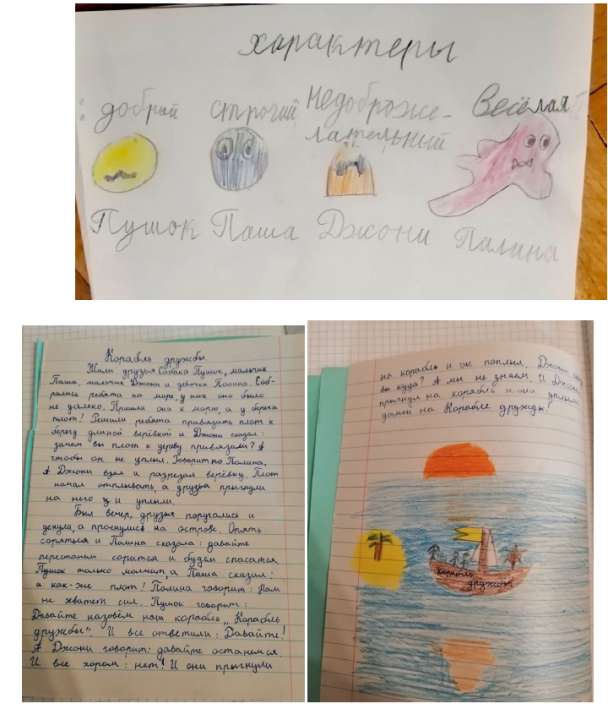 характеры
добрый строгий Недоброже- Весёлая
лательный
Пушок Паша Джони Палина
Корабль дружбы.
Жили друзья собака Пушок, мальчик
Паша, мальчик Джони и девочка Полина. Соб-
рались ребята на море, у них оно было
не далеко. Пришли они к морю, а у берега
плот! Решили ребята привязать плот к
берегу длиной верёвкой и Джони сказал:
зачем вы плот к дереву привязали? А
чтобы он не уплыл. Говорит Полина,
А Джони взял и разрезал верёвку. Плот
начал отплывать, а друзья прыгнули
на него и уплыли.
Был вечер, друзья поругались и
уснули, а проснулись на острове. Опять
сорятся и Полина сказала: давайте
перестанем сорится и будем спасатся
Пушок только молчит, а Паша сказал:
а как-же плот! Полина говорит: Нам
не хватит сил. Пушок говорит:
Давайте назовём наш корабль „Корабль
дружбы". И все ответили: Давайте!
А Джони говорит: давайте останемся
И все хором: нет! И они прыгнули
на корабль и он поплыл. Джони
вы куда? А мы не знаем. И Джони
прыгнул на корабль и они уплыли
домой на Корабле дружбы!
корабль
дружбы